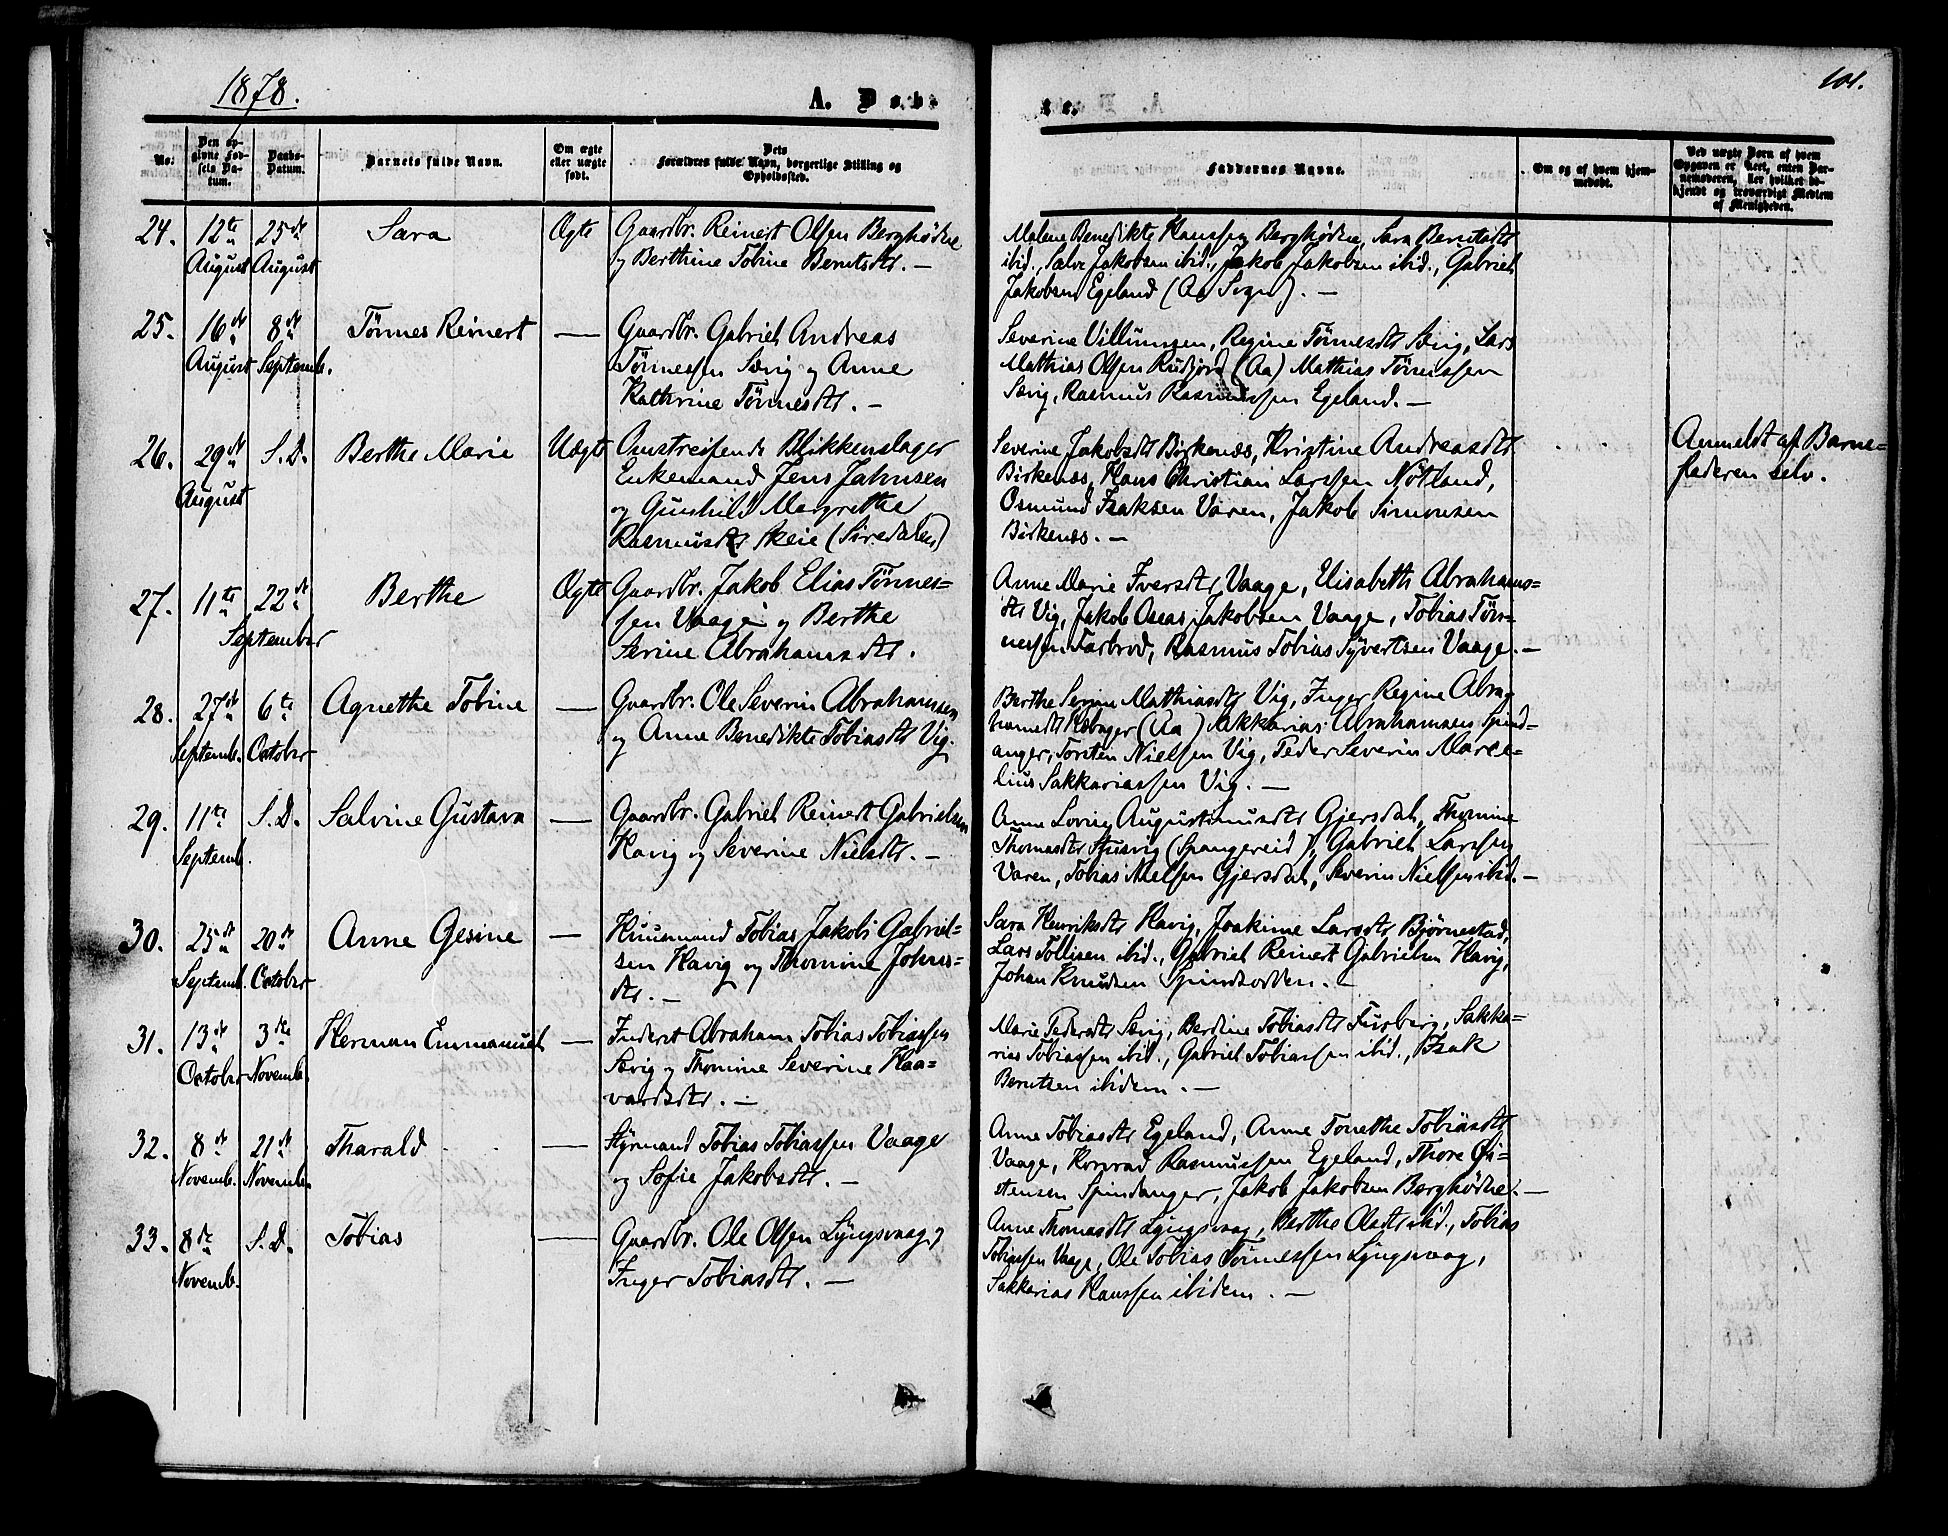 1878.
A. Døb-
te.
101.
No.
Den opgivne Fødsels Datum.
Daabs-Datum.
Barnets fulde Navn.
Om ægte eller uægte født.
Dets Forældres fulde Navn, borgerlige Stilling og Opholdssted.
Faddernes Navne.
Om og af hvem hjemmedøbt.
Ved uægte Børn af hvem Opgaven er skeet, enten Barnemoderen, eller hvilket bekjendt og troværdigt Medlem af Menigheden.
24. 12te August 25de August Sara Ægte
Gaardbr. Reinert Olsen Berghødne
og Berthine Tobine Berntsdtr. —
Malene Benedikte Hanssen Berghødne, Sara Berntsdtr
ibid., Salve Jakobsen ibid., Jakob Jakobsen ibid., Gabriel
Jakobsen Egeland (Aa Sogn). —
25. 16de August 8de Septemb. Tönnes Reinert —
Gaardbr. Gabriel Andreas
Tönnessen Sævig og Anne
Kathrine Tönnesdtr. —
Severine Villumsen, Regine Tönnesdtr Sævig, Lars
Mathias Olsen Rudjord (Aa) Mathias Tönnessen
Sævig, Rasmus Rasmussen Egeland. —
26. 29de August S. D. Berthe Marie Uægte
Omstreifende Blikkenslager
Enkemand Jens Jahnsen
og Gunhild Margrethe
Rasmusdtr Skeie (Siredalen)
Severine Jakobsdtr Birkenæs, Kristine Andreasdtr
Birkenæs, Hans Christian Larssen Nötland,
Osmund Isaksen Varen, Jakob Simonsen
Birkenæs. —
Anmeldt af Barne-
faderen selv.
27. 11te 22de September Berthe Ægte
Gaardbr. Jakob Elias Tönnes-
sen Vaage og Berthe
Serine Abrahamsdtr.
Anne Marie Iversdtr Vaage, Elisabeth Abrahams-
dtr Vig, Jakob Oseas Jakobsen Vaage, Tobias Tön-
nessen Farbrod, Rasmus Tobias Syvertsen Vaage. —
28. 27de Septemb. 6te October Agnethe Tobine —
Gaardbr. Ole Severin Abrahamsen
og Anne Benedikte Tobiasdtr Vig.
Berthe Serine Mathiasdtr Vig, Inger Regine Abra-
hamsdtr (Aa) Sakkarias Abrahamsen Spind-
anger, Torsten Nielsen Vig, Peder Severin Marce-
lius Sakkariassen Vig. —
29. 11te Septemb. S. D. Salvine Gustava —
Gaardbr. Gabriel Reinert Gabrielsen
Havig og Severine Nielsdtr. —
Anne Lovise Augustinusdtr Gjersdal, Thomine
Thomasdtr Stusvig (Spangereid), Gabriel Larssen
Varen, Tobias Nielsen Gjersdal, Severin Nielsen ibid. —
30. 25de Septemb. 20de October Anne Gesine —
Huusmand Tobias Jakob Gabriel-
sen Havig og Thomine Johns-
dtr. —
Sara Henriksdtr Havig, Joakime Larsdtr Björnestad,
Lars Tollisen ibid., Gabriel Reinert Gabrielsen Havig,
Johan Knudsen Spindsodden. —
31. 13de October 3die Novemb. Herman Emmanuel —
Inderst Abraham Tobias Tobiassen
Sævig og Thomine Severine Haa-
vardsdtr. —
Marie Pedersdtr Sævig, Berdine Tobiasdtr Fuglevig, Sakka-
rias Tobiassen ibid., Gabriel Tobiassen ibid., Isak
Berntsen ibidem. —
32. 8de Novemb. 21de Novemb. Tharald —
Styrmand Tobias Tobiassen Vaage
og Sofie Jakobsdtr. —
Anne Tobiasdtr Egeland, Anne Tonethe Tobiasdtr
Vaage, Konrad Rasmussen Egeland, Thore Öi-
stensen Spindanger, Jakob Jakobsen Berghödne. —
33. 8de Novemb. S. D. Tobias —
Gaardbr. Ole Olsen Lyngsvaag og
Inger Tobiasdtr. —
Anne Thomasdtr Lyngsvaag, Berthe Olsdtr ibid., Tobias
Tobiassen Vaage, Ole Tobias Tönnessen Lyngsvaag,
Sakkarias Hanssen ibidem. —